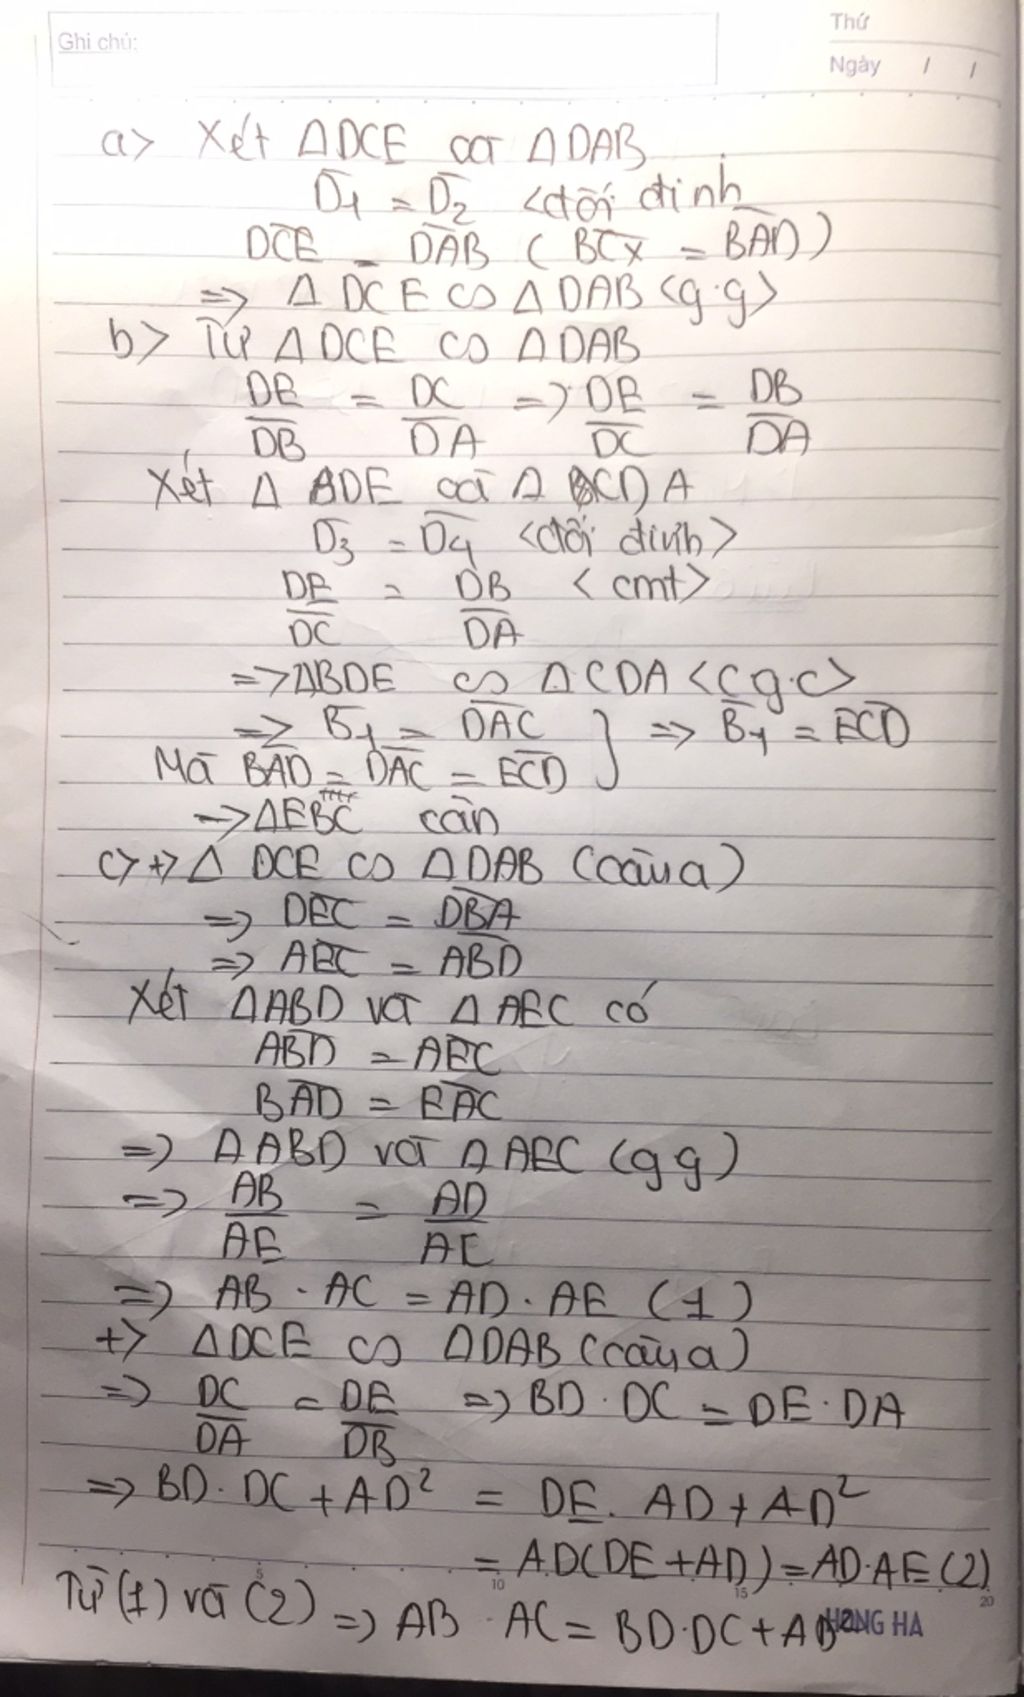 Ghi chú:
Thứ
Ngày / /
a> Xét ΔDCE và ΔDAB
D1 = D2 <đối đỉnh
DCE = DAB ( BCx = BAD )
=> Δ DCE ∽ Δ DAB <g.g>
b> Từ Δ DCE ∽ Δ DAB
DE/DB = DC/DA => DE/DC = DB/DA
Xét Δ BDE và Δ CDA
D3 = D4 <đối đỉnh>
DE/DC = DB/DA <cmt>
=> ΔBDE ∽ ΔCDA <c g.c>
=> B1 = DAC } => B1 = ECD
Mà BAD = DAC = ECD
-> ΔEBC cân
c> +> Δ DCE ∽ Δ DAB (câu a)
=> DEC = DBA
=> AEC = ABD
Xét ΔABD và Δ AEC có
ABD = AEC
BAD = EAC
=> Δ ABD và Δ AEC (g g)
=> AB/AE = AD/AC
=> AB . AC = AD . AE (1)
+> ΔDCE ∽ ΔDAB (câu a)
=> DC/DA = DE/DB => BD . DC = DE . DA
=> BD . DC + AD² = DE . AD + AD²
= AD(DE + AD) = AD.AE (2)
5 10 15 20
Từ (1) và (2) => AB . AC = BD.DC + AD²
HONG HA